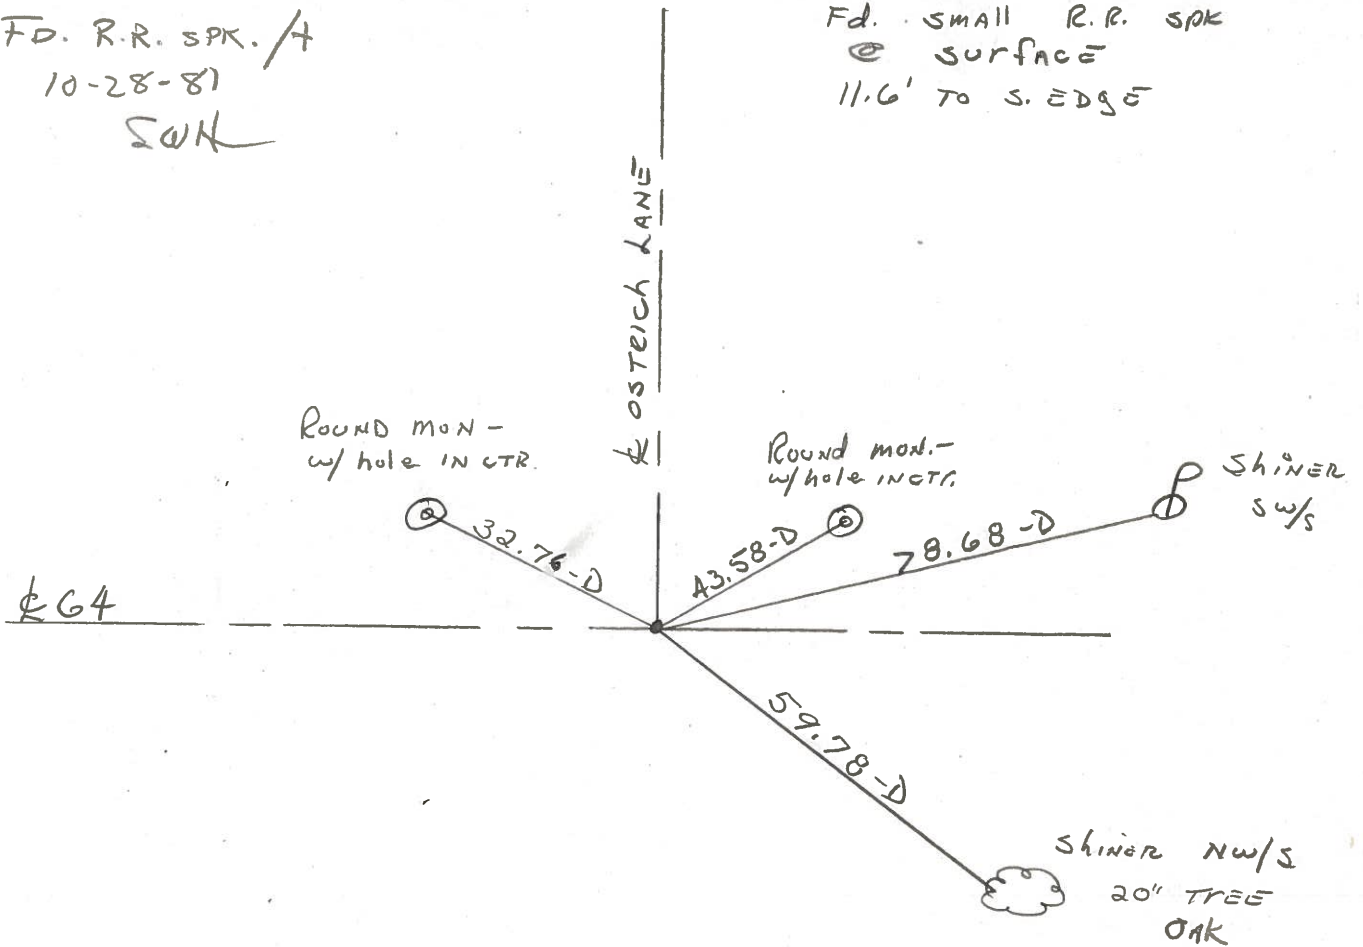 FD. R.R. SPK./A
10-28-81
SWH
Fd. small R.R. SPK
@ SurfACE
11.6' TO S. EDgE
℄ OSTrICh LANE
ROUND MON -
w/ hole IN CTR.
Round mon. -
w/ hole IN CTr.
ShiNER
SW/S
32.76-D
43.58-D
78.68-D
℄ 64
59.78-D
ShiNER NW/S
20" TrEE
OAK